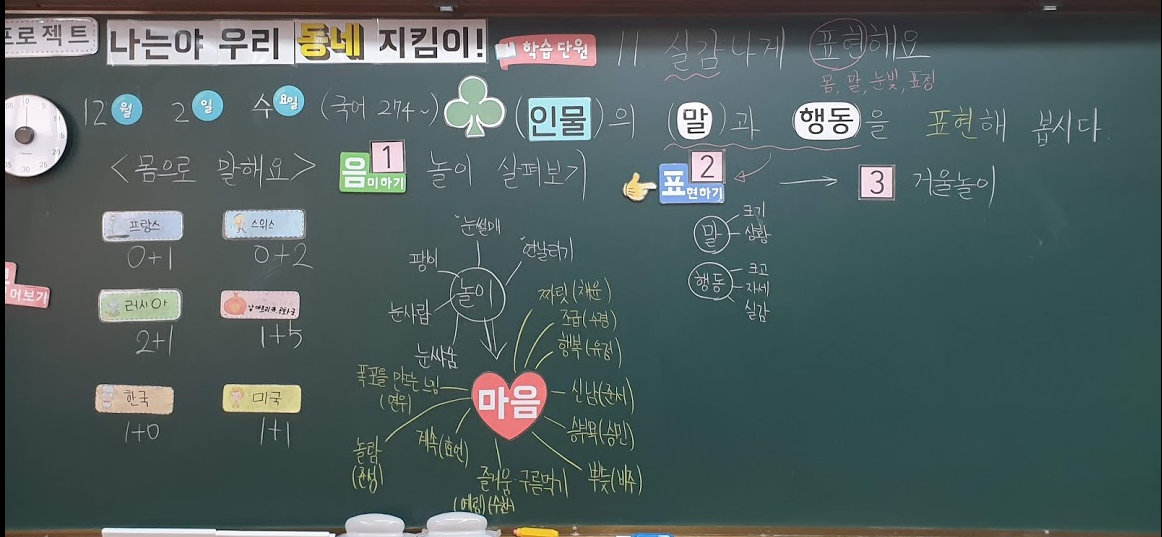 프로젝트
나는야 우리 동네 지킴이!
학습 단원
11. 실감나게 표현해요
몸, 말, 눈빛, 표정
12 월 2 일 수 요일 (국어 274~)
(인물)의 (말)과 행동을 표현해 봅시다.
<몸으로 말해요>
음미하기 1 놀이 살펴보기
표현하기 2
3 거울놀이
프랑스
0+1
스위스
0+2
러시아
2+1
1+5
한국
1+0
미국
1+1
어보기
놀이
눈썰매
연날리기
팽이
눈사람
눈싸움
마음
찌릿(채윤)
조급(수경)
행복(유정)
신남(준서)
승부욕(승민)
뿌듯(비주)
구름먹기
즐거움
(예림)
계속(효언)
놀람
(준성)
폭포를 만드는 느낌
(연우)
말
크기
상황
행동
크고
자세
실감